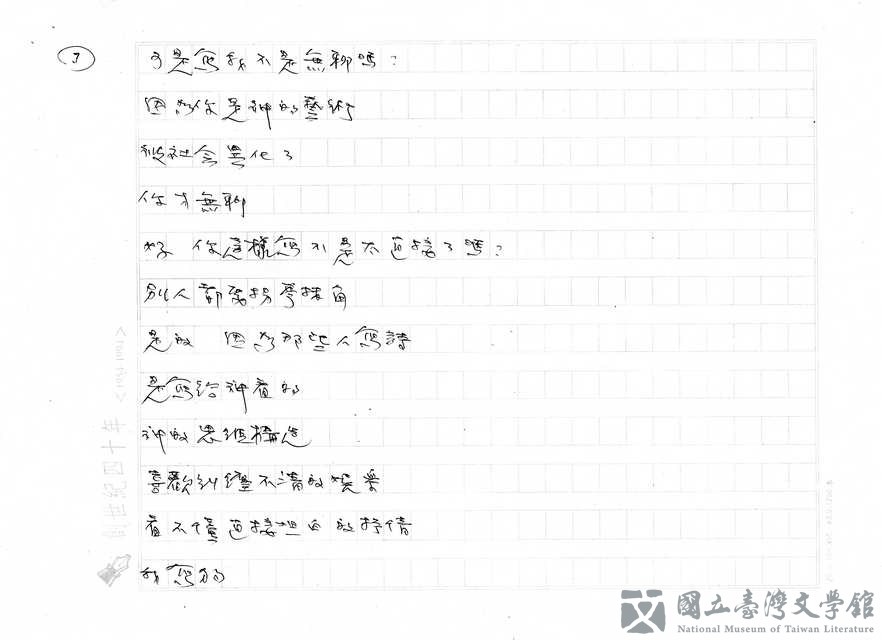 3
可是寫我不是無聊嗎？
因為你是神的藝術
被社會異化了
你才無聊
好　你這樣寫不是太直接了嗎？
別人都要拐彎抹角
是的　因為那些人寫詩
是寫給神看的
神的思維構造
喜歡糾纏不清的獎桨
看不懂直接坦白的抒情
我寫
創世紀四十年
〈1954-1994〉
國立臺灣文學館
National Museum of Taiwan Literature